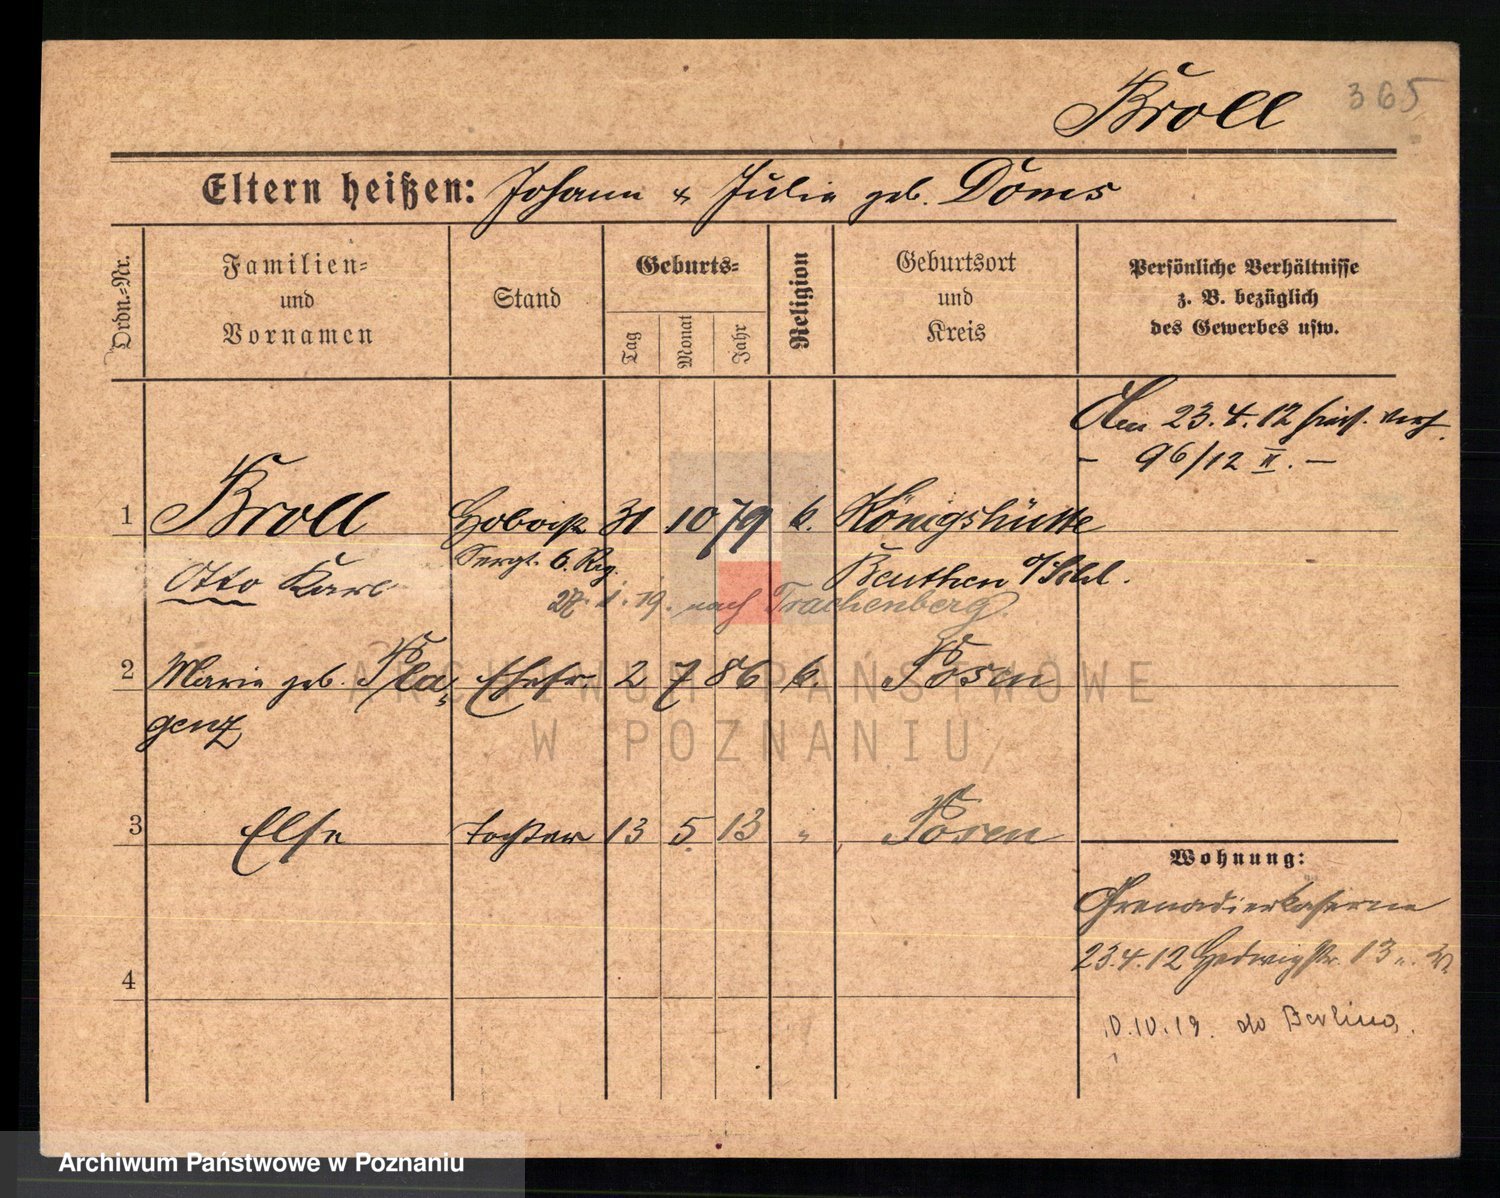 Kroll 365
Eltern heißen: Johann & Julie geb. Doms
Ordn.=Nr.
Familien=
und
Vornamen
Stand
Geburts=
Tag
Monat
Jahr
Religion
Geburtsort
und
Kreis
Persönliche Verhältnisse
z. B. bezüglich
des Gewerbes usw.
Am 23.4.12 hier verh.
– 96/12 II. –
1 Kroll Hoboist 31 10 79 k. Königshütte
Sergt. 6. Reg.
Otto Karl Beuthen o/Schl.
19. nach Trachenberg.
2 Marie geb. Pla= Ehefr. 2 7 86 k. Posen
genz
3 Else Tochter 13 5. 13 " Posen
Wohnung:
Grenadierkaserne
23.4.12 Hedwigstr. 13
4
10.10.19. do Berlina.
ARCHIWUM PAŃSTWOWE
W POZNANIU
Archiwum Państwowe w Poznaniu